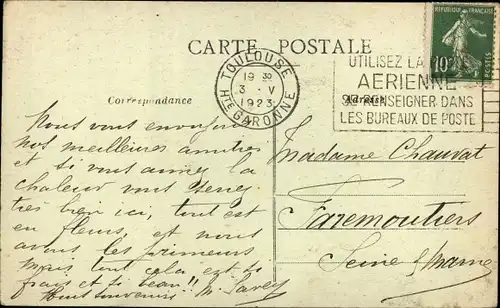 CARTE POSTALE
RÉPUBLIQUE FRANÇAISE
10
TOULOUSE
19 30
3 - V
1923
HTE GARONNE
UTILISEZ LA
AERIENNE
SE RENSEIGNER DANS
LES BUREAUX DE POSTE
Correspondance
Adresse
Nous vous envoyons
nos meilleures amitiés
et si vous aimez la
chaleur vous
très bien ici, tout est
en fleurs, et nous
avons les primeurs
mais tout cela est si
frais et si beau!!
Bons souvenirs M.
Madame Chauvat
Faremoutiers
Seine & Marne